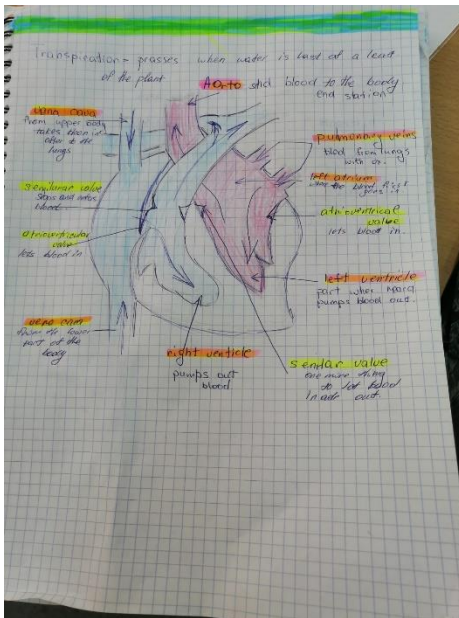 Transpiration = prasses when water is last of a leaf
of the plant
Aorto shd blood to the body
end station
vana cava
From upper body
takes blood in
after to the
lungs
pulmonary veins
blod from lungs
with o₂.
left atrium
the blood first
semilunar valve
blood
atrioventricular
valve
lets blood in
atrioventrical
valve
lets blood in.
left ventricle
part when heard
pumps blood out.
vena cava
from the lower
part of the
body
right venticle
pumps out
blood
sendar valve
one more thing
to let blood
in and out